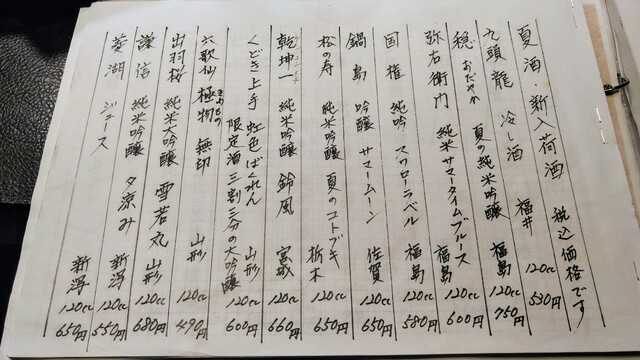 夏酒・新入荷酒 税込価格です
九頭龍 冷し酒 福井 120cc 530円
穏 おだやか 夏の純米吟醸 福島 120cc 750円
弥右衛門 純米サマータイムブルース 福島 120cc 600円
国権 純吟 スワローラベル 福島 120cc 580円
鍋島 吟醸 サマームーン 佐賀 120cc 650円
松の寿 純米吟醸 夏のコトブキ 栃木 120cc 650円
乾坤一 純米吟醸 鈴風 宮城 120cc 660円
くどき上手 虹色ばくれん 限定酒三割三分の大吟醸 山形 120cc 600円
六歌仙 極物 きわもの 無切 山形 120cc 490円
出羽桜 純米大吟醸 雪若丸 山形 120cc 680円
謙信 純米吟醸 夕涼み 新潟 120cc 550円
菱湖 ジュース 新潟 120cc 650円